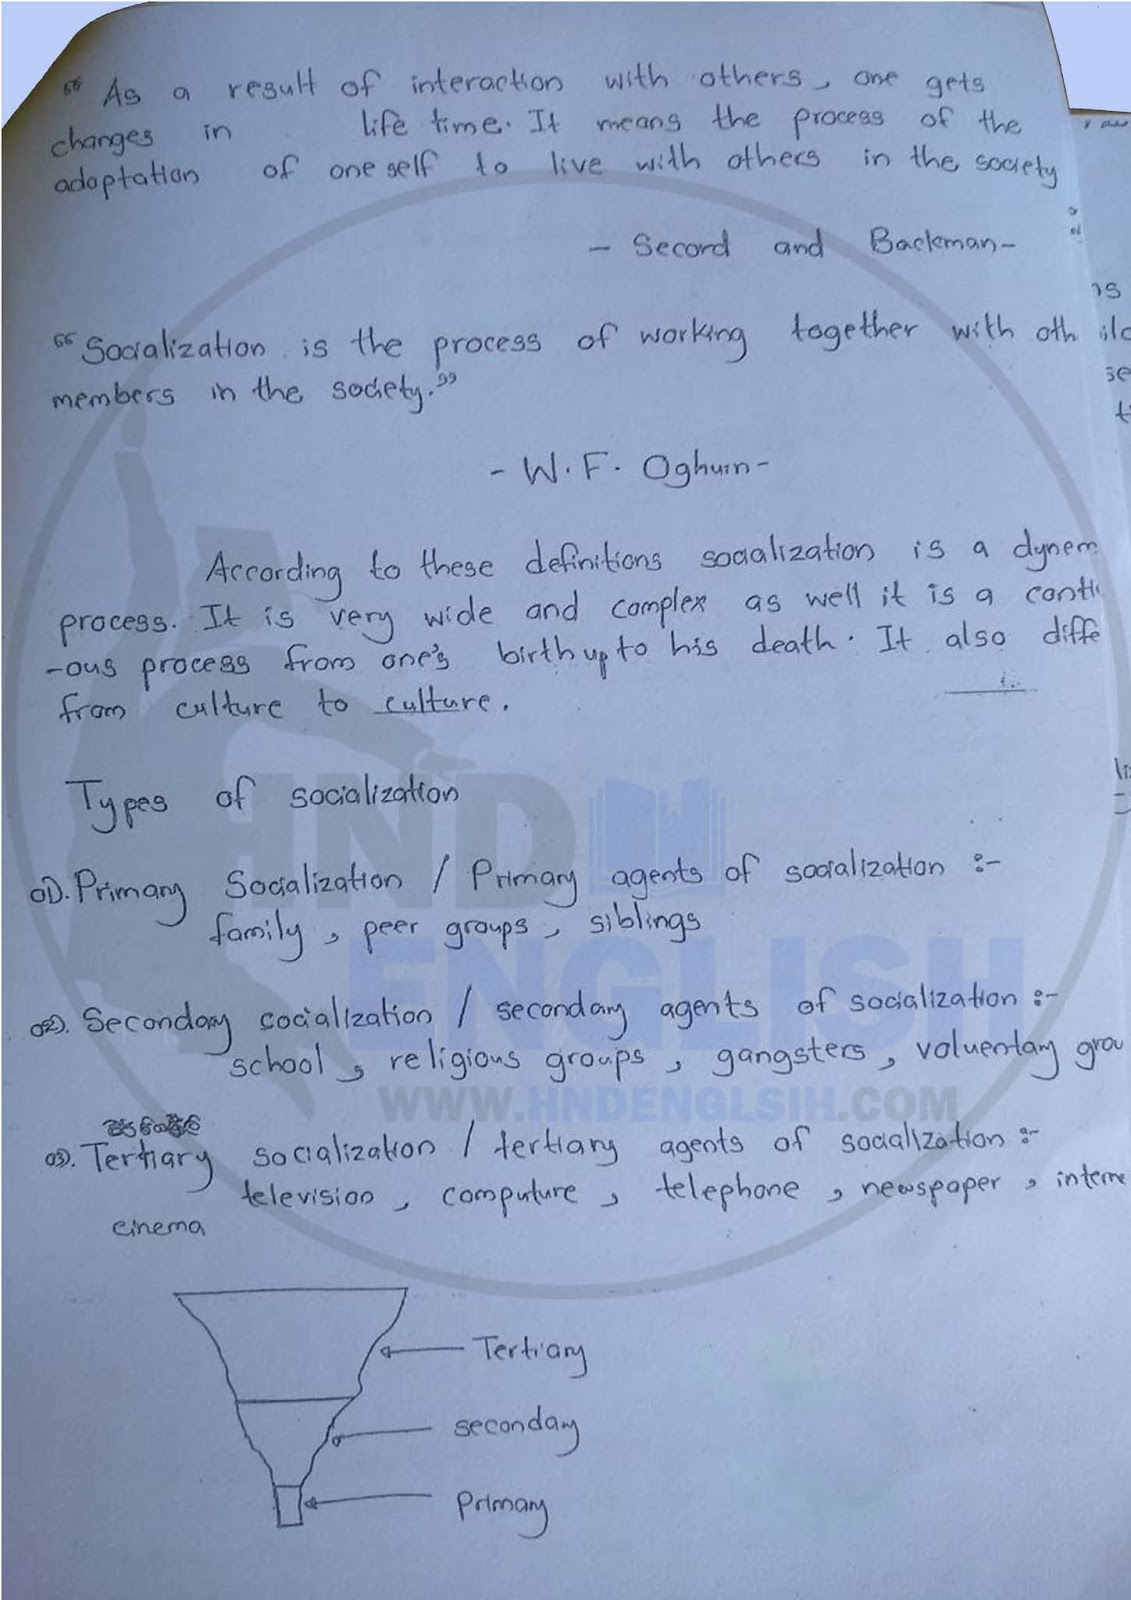 “ As a result of interaction with others, one gets
changes in life time. It means the process of the
adaptation of one self to live with others in the society
- Second and Backman-
“ Socialization is the process of working together with oth
members in the society.”
- W. F. Oghurn-
According to these definitions socialization is a dynem
process. It is very wide and complex as well it is a conti
-ous process from one's birth up to his death. It also diffe
from culture to culture.
Types of socialization
01). Primary Socialization / Primary agents of socialization :-
family, peer groups, siblings
02). Secondary cocialization / secondary agents of socialization :-
school, religious groups, gangsters, voluentary grou
03). Tertiary socialization / tertiary agents of socialization :-
television, computure, telephone, newspaper, interne
cinema
Tertiary
secondary
Primary
HND
ENGLISH
WWW.HNDENGLSIH.COM